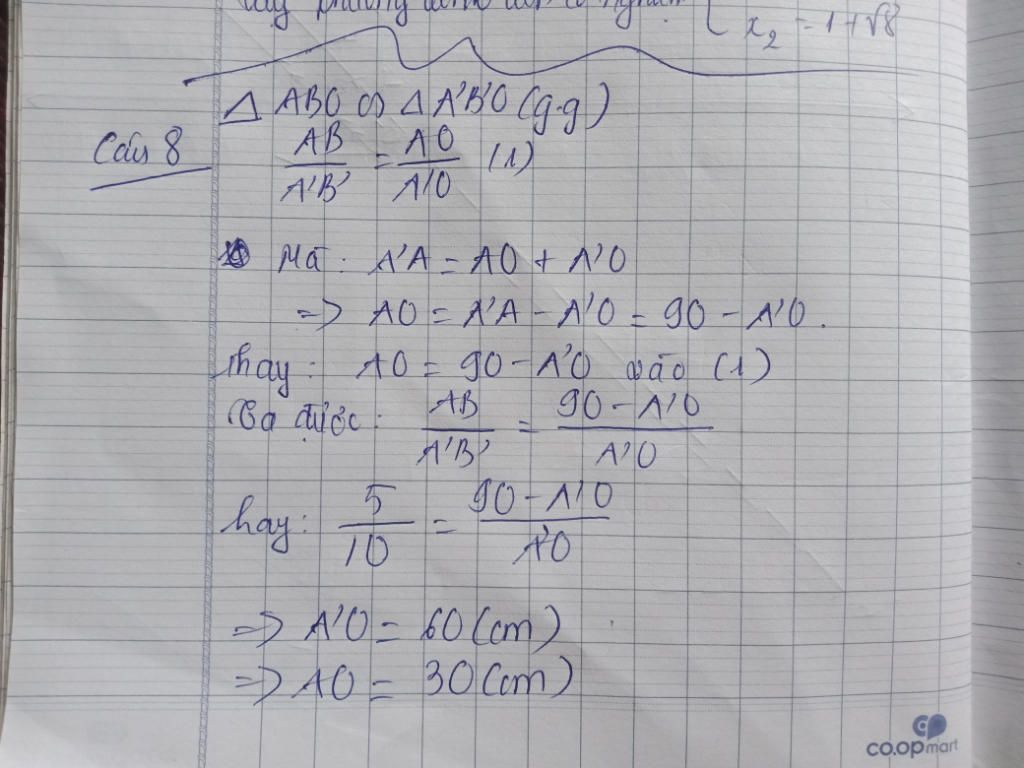 x₂ = 1+√8
Δ ABO ∽ Δ A'B'O (g.g)
Câu 8
AB/A'B' = AO/A'O (1)
Mà: A'A = AO + A'O
=> AO = A'A - A'O = 90 - A'O.
Thay: AO = 90 - A'O vào (1)
Ta được: AB/A'B' = 90 - A'O/A'O
hay: 5/10 = 90 - A'O/A'O
=> A'O = 60 (cm)
=> AO = 30 (cm)
co.opmart